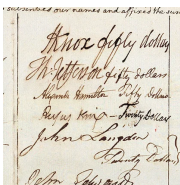 subscribed our names and affixed the sum
H Knox fifty dollars
Th. Jefferson fifty dollars
Alexander Hamilton Fifty Dollars
Rufus King Twenty Dollars
John Langdon
Twenty Dollars
John